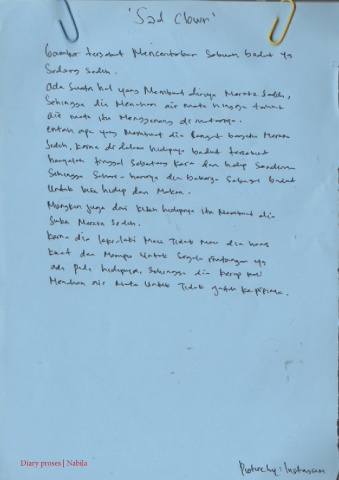 'Sad Clown'
Gambar tersebut Menceritakan Sebuah badut yg
Sedang Sedih.
Ada Suatu hal yang Membuat dirinya Merasa Sedih,
Sehingga dia Menahan air mata hingga
air mata itu Menggenang di matanya.
entah apa yang Membuat dia Sangat begitu Merasa
Sedih, karna di dalam hidupnya badut tersebut
hanyalah tinggal Sebatang kara dan hidup Sendirian
Sehingga Sehari-harinya dia bekerja Sebagai badut
Untuk bisa hidup dan Makan.
Mungkin juga dari kisah hidupnya itu Membuat dia
Suka Merasa Sedih.
Karna dia laki-laki Mau Tidak Mau dia harus
kuat dan Mampu Untuk Segala yg
ada pada hidupnya, Sehingga dia kerap kali
Menahan air Mata Untuk Tidak jatuh ke pipinya.
Diary proses | Nabila
Picture by : Instagram